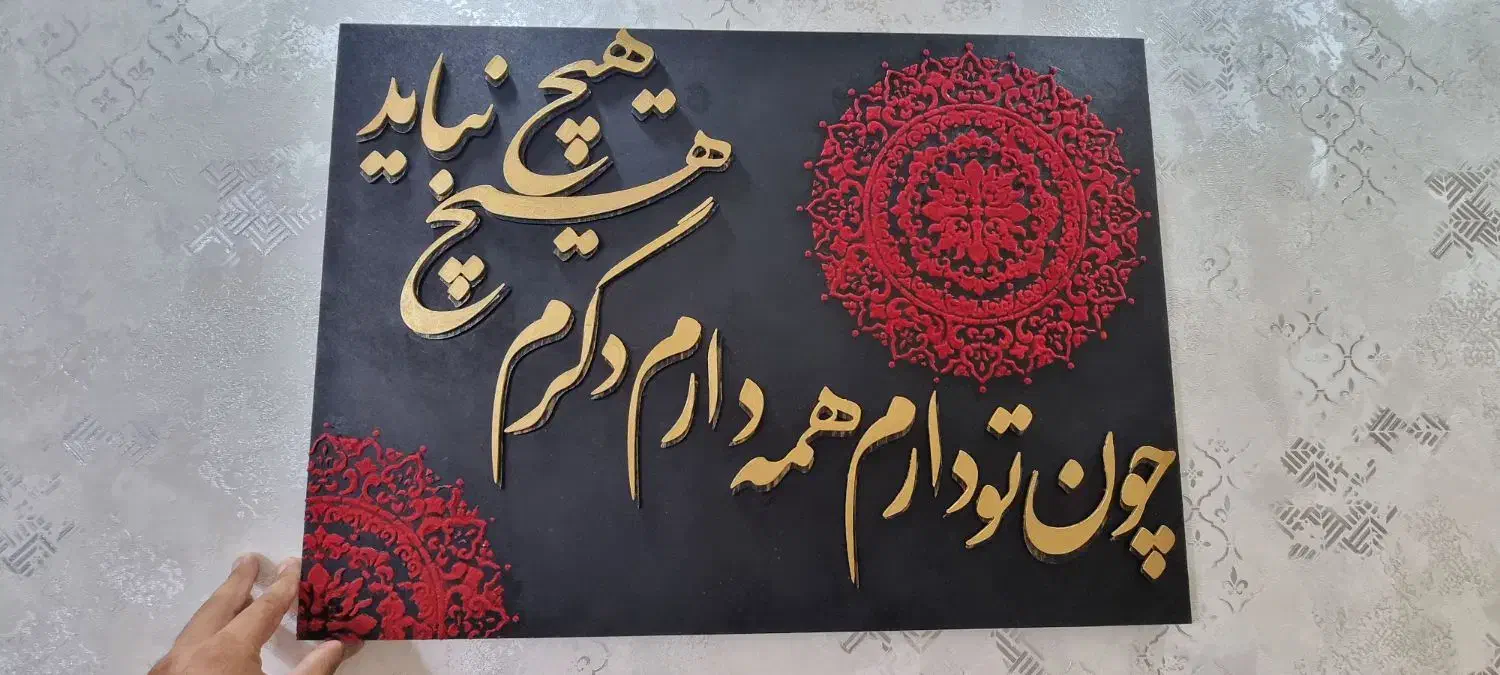 چون تو دارم همه دارم دگرم
هیچ
هیچ نباید